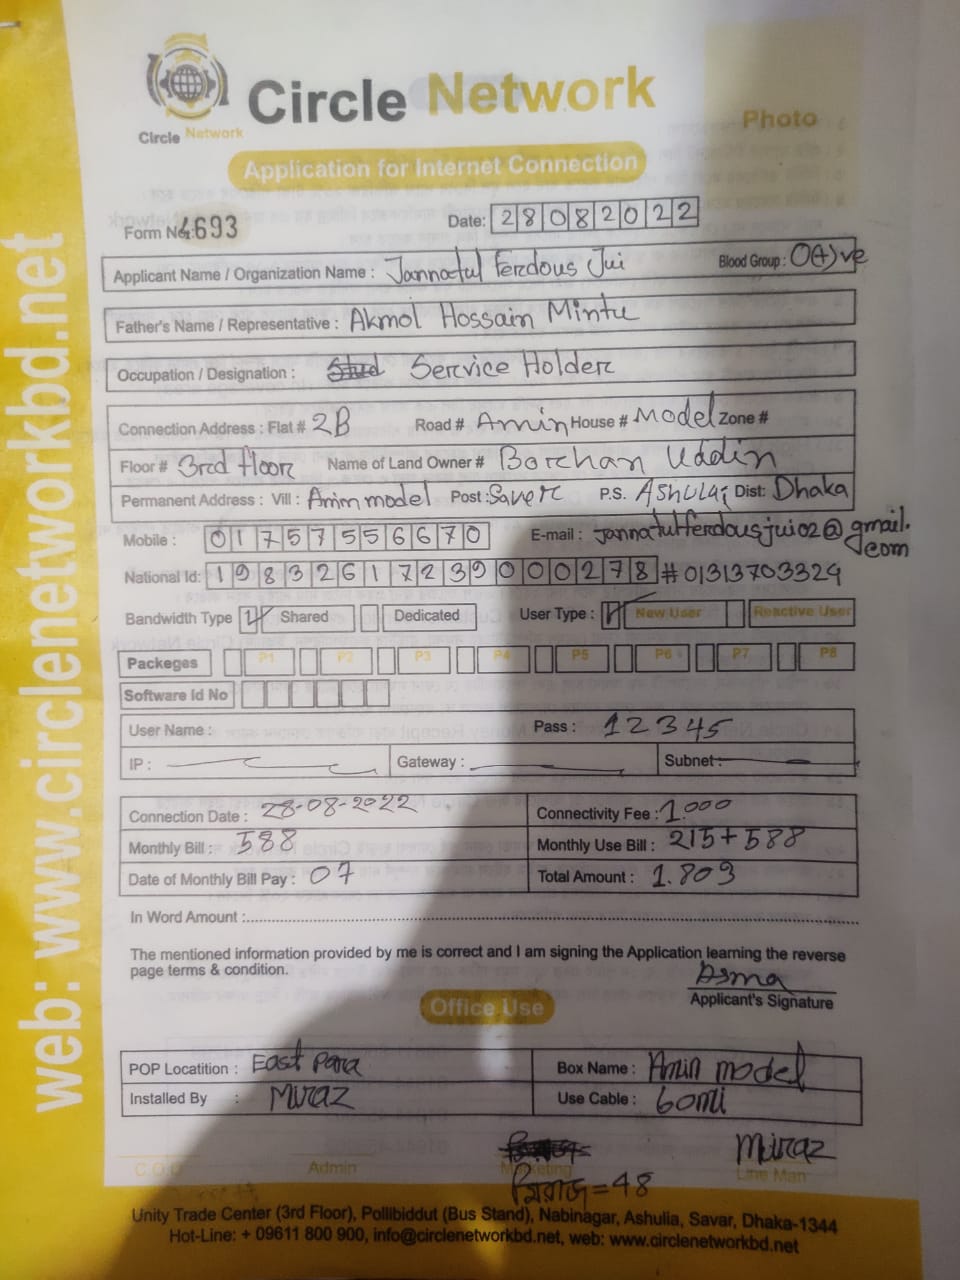 Circle Network
Circle Network
Photo
Application for Internet Connection
Form No: 4693
Date: 28082022
Applicant Name / Organization Name : Jannatul Ferdous Jui Blood Group : O(+)ve
Father's Name / Representative : Akmol Hossain Mintu
Occupation / Designation : Stud Service Holder
Connection Address : Flat # 2B Road # Amin House # Model Zone #
Floor # 3rd floor Name of Land Owner # Borhan Uddin
Permanent Address : Vill : Amin model Post : Saver P.S. Ashulai Dist: Dhaka
Mobile : 01757556670 E-mail : jannatulferdousjui02@gmail.com
National Id: 19832617239000278 #01313703324
Bandwidth Type Shared Dedicated User Type : New User Reactive User
Packeges P1 P2 P3 P4 P5 P6 P7 P8
Software Id No
User Name : Pass : 12345
IP : Gateway : Subnet :
Connection Date : 28-08-2022 Connectivity Fee : 1000
Monthly Bill : 588 Monthly Use Bill : 215+588
Date of Monthly Bill Pay : 07 Total Amount : 1.803
In Word Amount :
The mentioned information provided by me is correct and I am signing the Application learning the reverse
page terms & condition.
Asma
Applicant's Signature
Office Use
POP Locatition : East Para Box Name : Amin model
Installed By : Miraz Use Cable : 60mi
Miraz
C.O.O Admin Marketing Line Man
=48
Unity Trade Center (3rd Floor), Pollibiddut (Bus Stand), Nabinagar, Ashulia, Savar, Dhaka-1344
Hot-Line: + 09611 800 900, info@circlenetworkbd.net, web: www.circlenetworkbd.net
web: www.circlenetworkbd.net